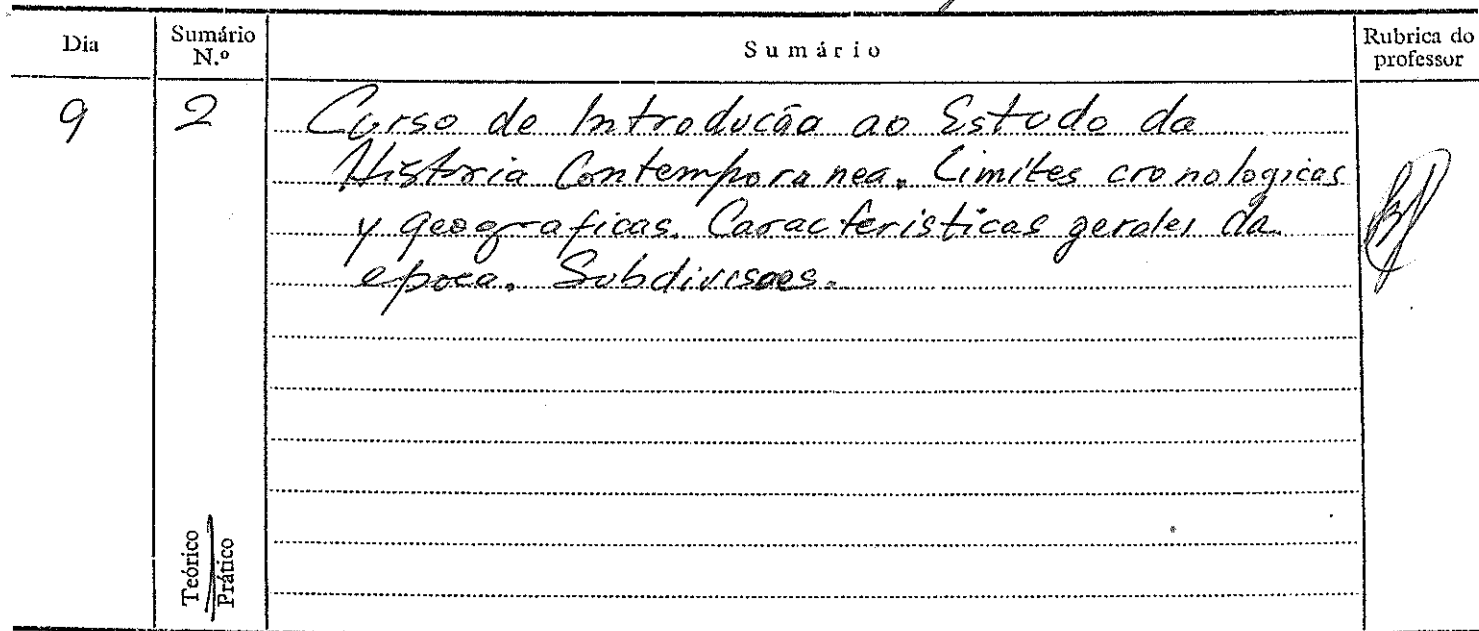 Dia Sumário N.º Sumário Rubrica do professor
9 2 Curso de Introducão ao Estudo da
Historia Contemporanea. Limites cronologicas
y geograficas. Caracteristicas gerales da
epoca. Subdivisoes.
Teórico
Prático